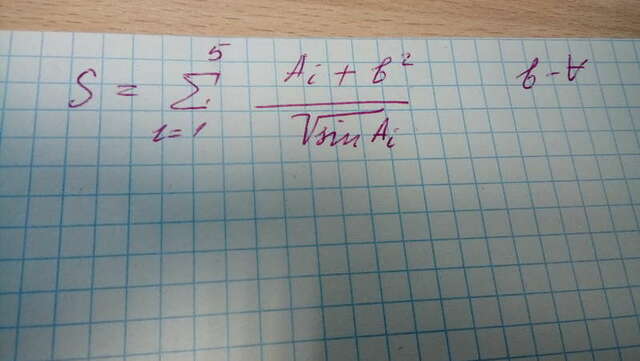 S = \sum_{i=1}^{5} \frac{A_i + b^2}{\sqrt{\sin A_i}}